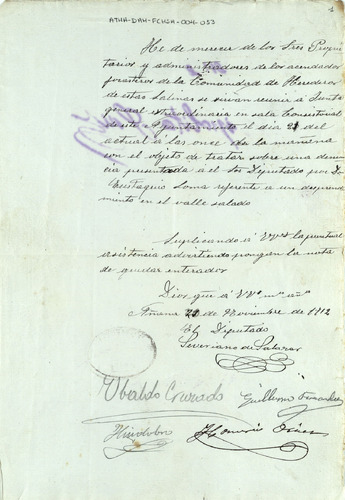 ATHA-DAH-FCHSA-004-053
1
He de merecer de los Sres Propie
tarios y administradores de los acendados
forasteros de la Comunidad de Herederos
de estas Salinas se sirvan reunir a Junta
general extraordinaria en sala Consistorial
de este Ayuntamiento el dia 21 del
actual a las once de la mañana
con el objeto de tratar sobre una denun
cia presentada a el Sor Diputado por Dn
Eustaquio Loma referente a un desprendi
miento en el valle salado
Suplicando á VVs la puntual
asistencia advirtiendo pongan la nota
de quedar enterados
Dios gue á VVs ms as
Añana de Noviembre de 1912
El Diputado
Severiano de Salazar
Ubaldo Cruzado Guillermo Fernandez
Hindobro